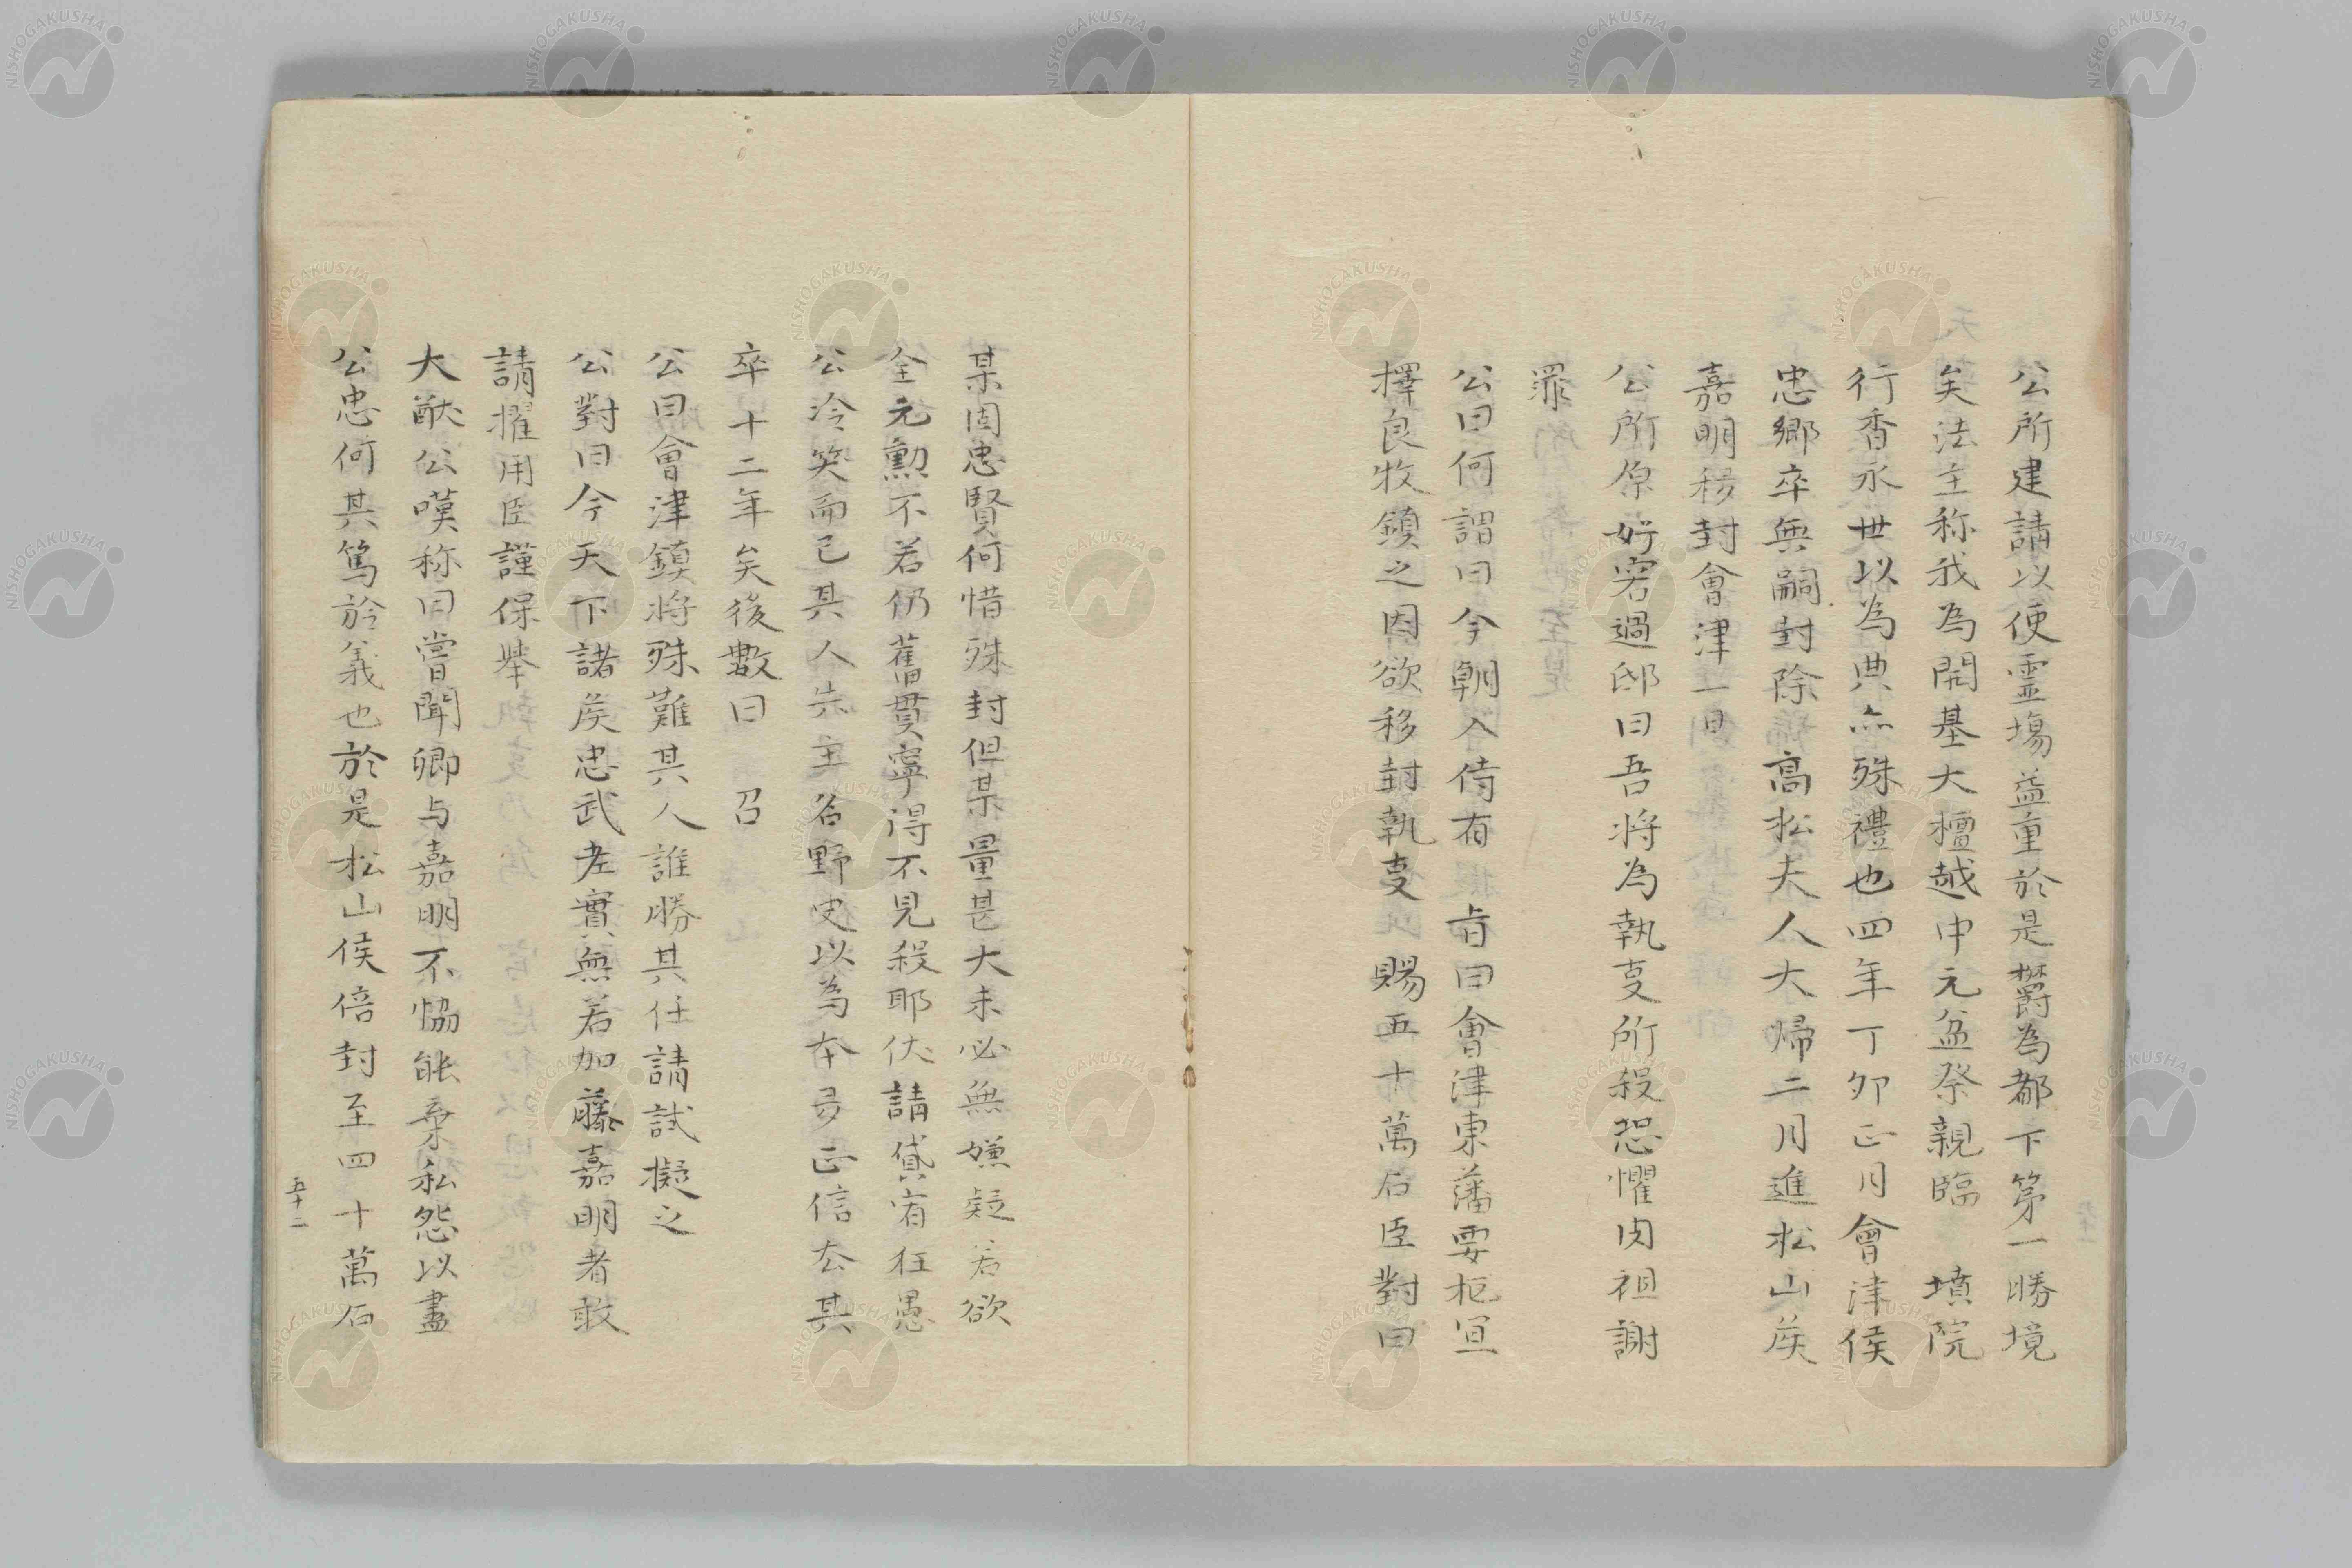 公所建請以便霊塲益重於是欝為都下第一勝境
矣法主称我為開基大檀越中元盆祭親臨　墳院
行香永世以為典亦殊禮也四年丁夘正月會津侯
忠郷卒無嗣封除　髙松夫人大帰二月進松山矦
嘉明移封會津一日
公所原好宻過邸曰吾将為執叓所殺恐懼肉袒謝
罪
公曰何謂曰今朝入侍有　旨曰會津東藩要枢冝
擇良牧鎮之因欲移封執叓　賜五十萬石臣對曰
某固忠賢何惜殊封但某量甚大未必無嫌疑若欲
全元勲不若仍舊貫寧得不見殺耶伏請貸宥狂愚
公冷笑而已其人失主名野史以為本多正信厺其
卒十二年矣後數日　召
公曰會津鎮将殊難其人誰勝其任請試擬之
公對曰今天下諸矦忠武老實無若加藤嘉明者敢
請擢用臣謹保挙
大猷公嘆称曰嘗聞卿与嘉明不恊能棄私怨以盡
公忠何其篤於義也於是松山侯倍封至四十萬石
五十二